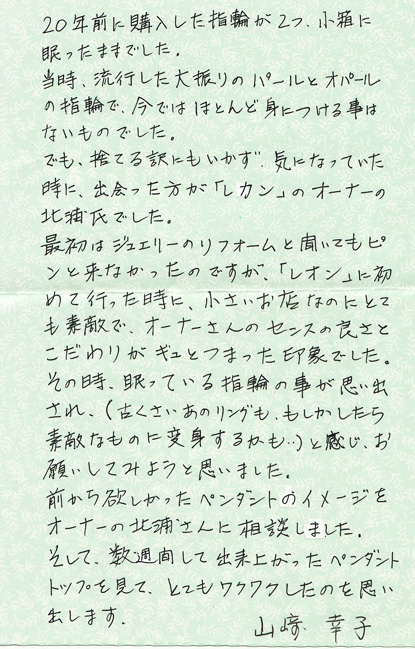 20年前に購入した指輪が2つ、小箱に
眠ったままでした。
当時、流行した大振りのパールとオパール
の指輪で、今ではほとんど身につける事は
ないものでした。
でも、捨てる訳にもいかず、気になっていた
時に、出会った方が「レカン」のオーナーの
北浦氏でした。
最初はジュエリーのリフォームと聞いてもピ
ンと来なかったのですが、「レオン」に初
めて行った時に、小さいお店なのにとて
も素敵で、オーナーさんのセンスの良さと
こだわりがギュとつまった印象でした。
その時、眠っている指輪の事が思い出
され、(古くさいあのリングも、もしかしたら
素敵なものに変身するかも‥)と感じ、お
願いしてみようと思いました。
前から欲しかったペンダントのイメージを
オーナーの北浦さんに相談しました。
そして、数週間して出来上がったペンダント
トップを見て、とてもワクワクしたのを思い
出します。
山﨑 幸子